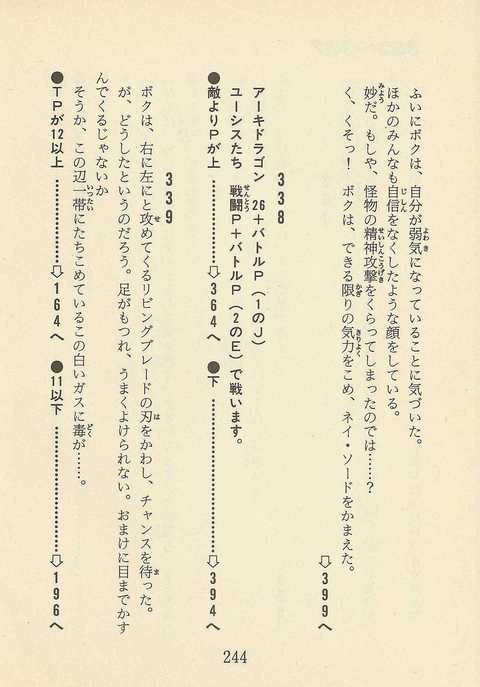 ふいにボクは、自分が弱気になっていることに気づいた。
ほかのみんなも自信をなくしたような顔をしている。
妙だ。もしや、怪物の精神攻撃をくらってしまったのでは……？
く、くそっ！　ボクは、できる限りの気力をこめ、ネイ・ソードをかまえた。
⇨399へ
338
アーキドラゴン　26＋バトルP（1のJ）
ユーシスたち　戦闘P＋バトルP（2のE）で戦います。
●敵よりPが上…………⇨364へ　●下…………⇨394へ
339
ボクは、右に左にと攻めてくるリビングブレードの刃をかわし、チャンスを待った。
が、どうしたというのだろう。足がもつれ、うまくよけられない。おまけに目までかす
んでくるじゃないか
そうか、この辺一帯にたちこめているこの白いガスに毒が……。
●TPが12以上…………⇨164へ　●11以下…………⇨196へ
244